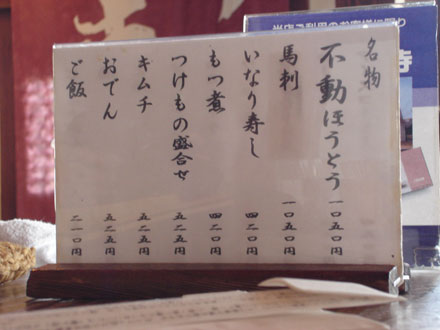 名物
不動ほうとう 一〇五〇円
馬刺 一〇五〇円
いなり寿し 四二〇円
もつ煮 四二〇円
つけもの盛合せ 五二五円
キムチ 五二五円
おでん 五二五円
ご飯 二一〇円
当店ご利用のお客様に限り